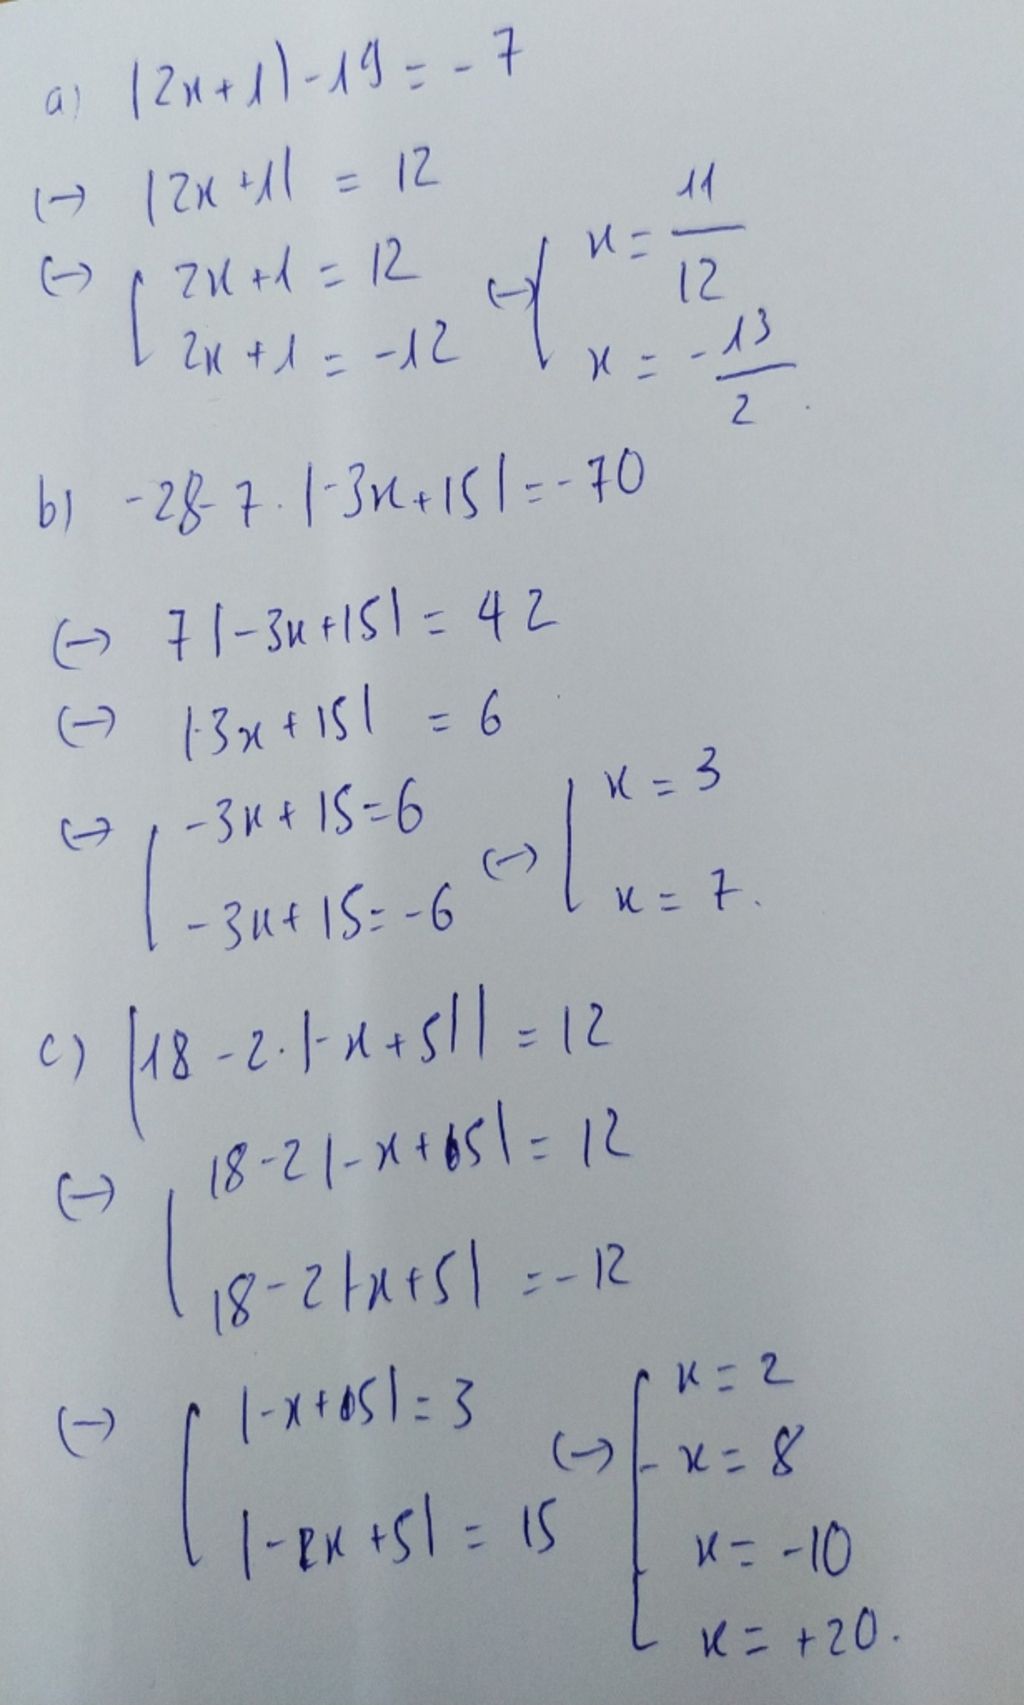 a) |2x+1|-19 = -7
(→) |2x+1| = 12
(→) [ 2x+1 = 12 (→) [ x = 11/12
2x+1 = -12 x = -13/2.
b) -28-7.|-3x+15| = -70
(→) 7|-3x+15| = 42
(→) |-3x+15| = 6
(→) [ -3x+15=6 (→) [ x = 3
-3x+15=-6 x = 7.
c) |18-2.|-x+5|| = 12
(→) [ 18-2|-x+5| = 12
18-2|-x+5| = -12
(→) [ |-x+5| = 3 (→) [ x = 2
x = 8
|-x+5| = 15 x = -10
x = +20.